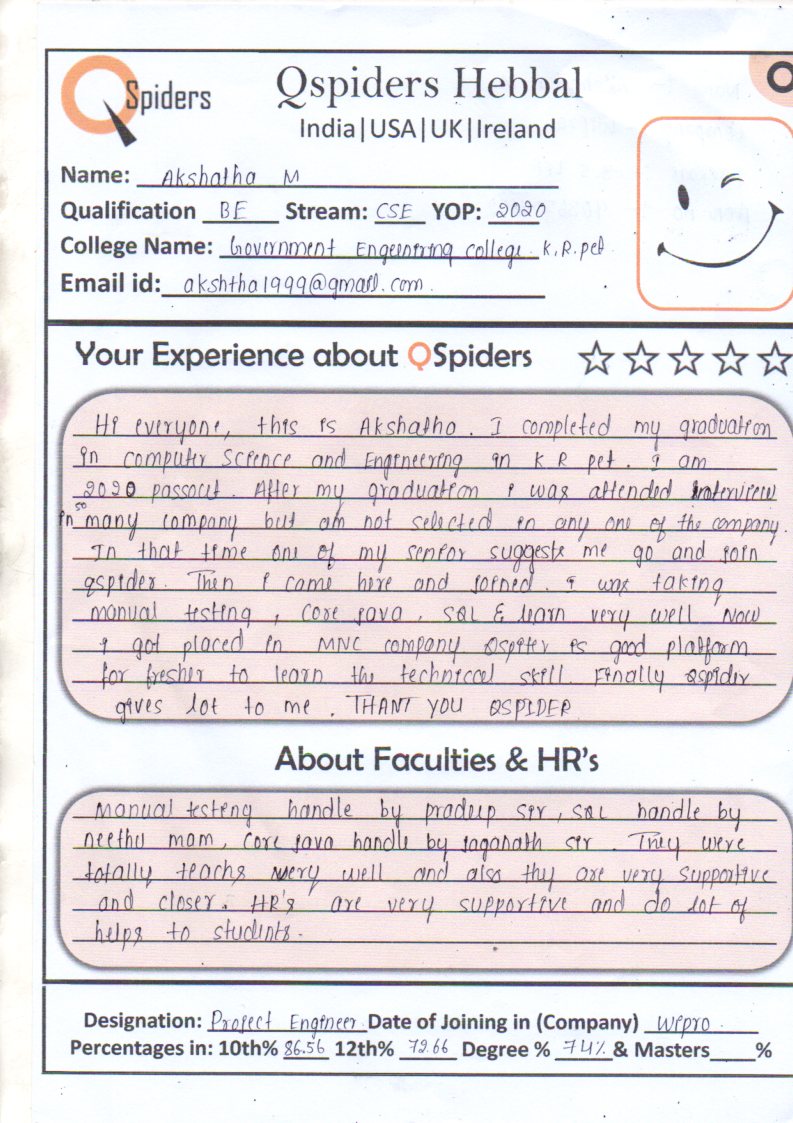 QSpiders
Qspiders Hebbal
India|USA|UK|Ireland
Name: Akshatha M
Qualification BE Stream: CSE YOP: 2020
College Name: Government Engeentring college. K.R.pet.
Email id: akshtha1999@gmail.com.
Your Experience about QSpiders
Hi everyone, this is Akshatha. I completed my graduation
in computer Science and Engineering in K R pet. I am
2020 passout. After my graduation i was attended interview
in so many company but am not selected in any one of the company.
In that time one of my senior suggests me go and join
qspider. Then i came here and joined. i was taking
manual testing, Core java, SQL & learn very well Now
i got placed in MNC company Qspiter is good platform
for fresher to learn the technical skill. Finally Qspider
gives lot to me. THANT YOU QSPIDER
About Faculties & HR's
Manual testing handle by pradeep sir, SQL handle by
neethu mam, Core java handle by jaganath sir. They were
totally teachs very well and also they are very Supportive
and closer. HR's are very supportive and do lot of
helps to students.
Designation: Project Engineer Date of Joining in (Company) Wipro
Percentages in: 10th% 86.56 12th% 72.66 Degree % 74% & Masters____%